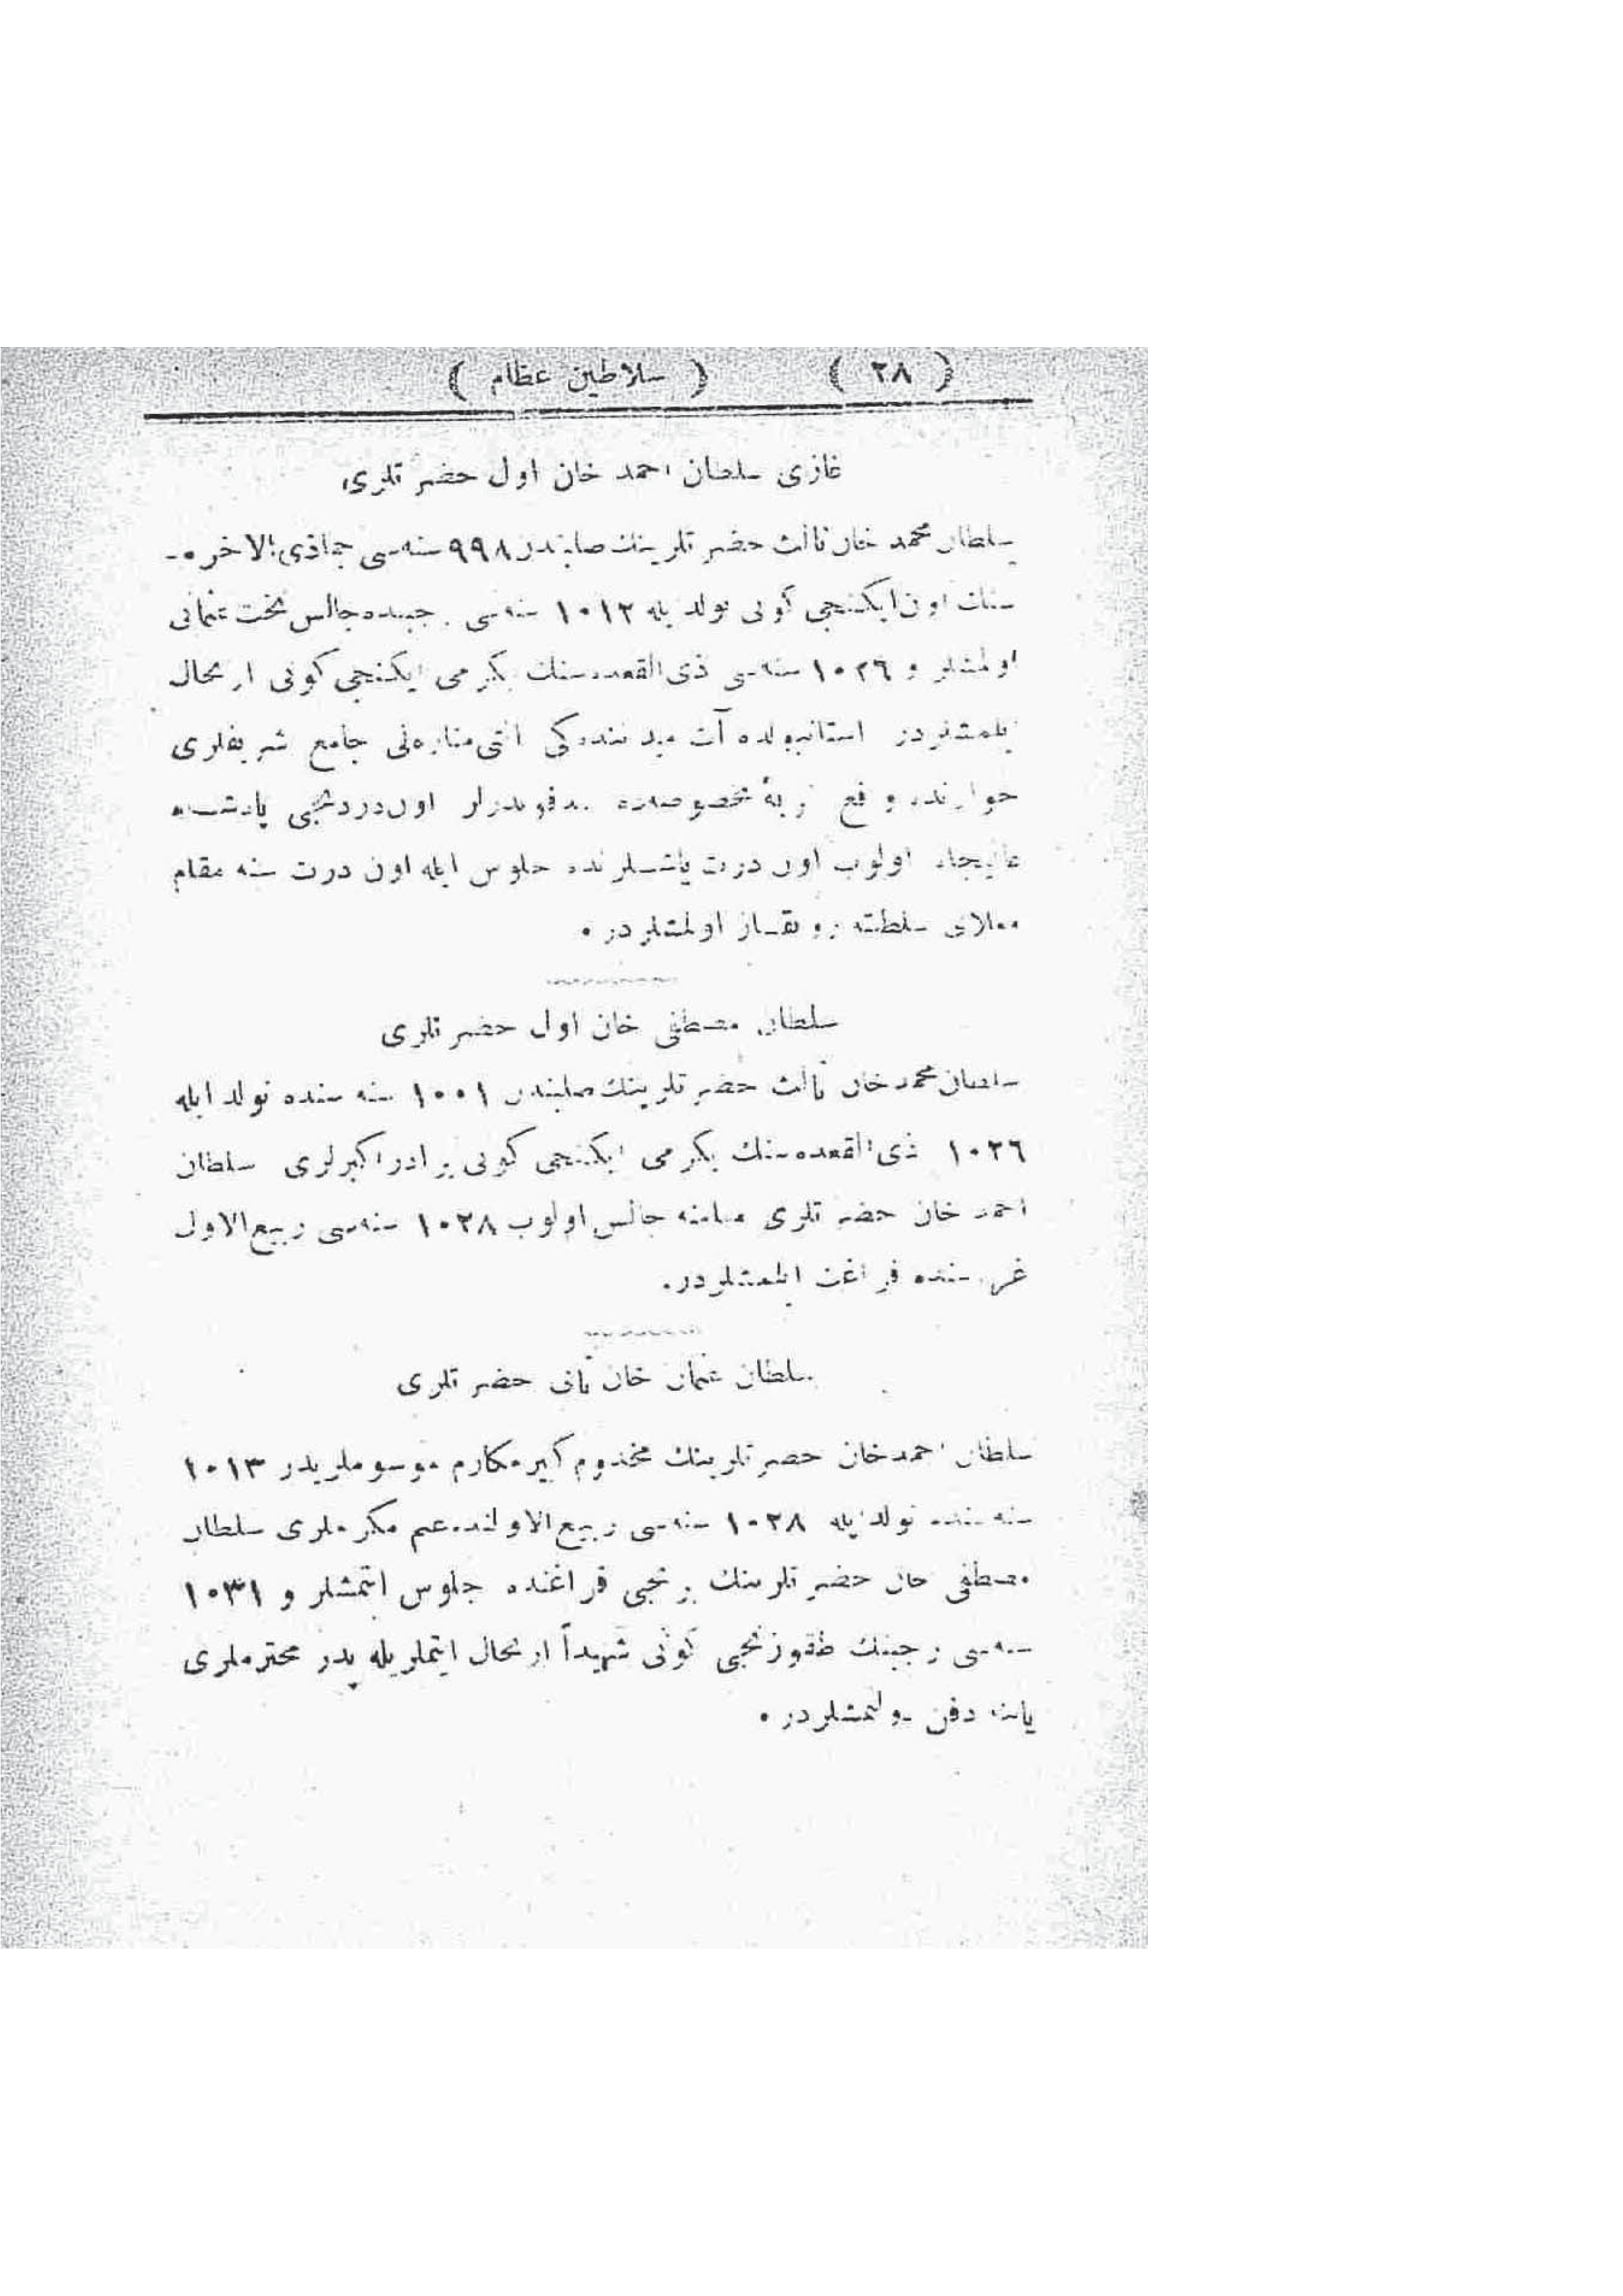 ( ٢٨ ) ( سلاطين عظام )
غازى سلطان احمد خان اول حضرتلرى
سلطان محمد خان ثالث حضرتلرينك صلبندن ٩٩٨ سنه‌سى جماذى‌الاخره‌
سنك اون ايكنجى كونى تولد ايله ١٠١٢ سنه‌سى رجبنده جالس تخت عثمانى
اولمشلر و ١٠٢٦ سنه‌سى ذى‌القعده‌سنك يكرمى ايكنجى كونى ارتحال
ايلمشلردر استانبولده آت ميداننده‌كى التى مناره‌لى جامع شريفلرى
جوارنده واقع تربهٔ مخصوصه‌ده مدفوندرلر اون‌دردنجى پادشاه
عاليجاه اولوب اون درت ياشلرنده جلوس ايله اون درت سنه مقام
معلاى سلطنته رونقساز اولمشلردر ٠
سلطان مصطفى خان اول حضرتلرى
سلطان محمد خان ثالث حضرتلرينك صلبندن ١٠٠١ سنه سنده تولد ايله
١٠٢٦ ذى‌القعده‌سنك يكرمى ايكنجى كونى برادر اكبرلرى سلطان
احمد خان حضرتلرى مقامنه جالس اولوب ١٠٢٨ سنه‌سى ربيع‌الاول
غره‌سنده فراغت ايلمشلردر.
سلطان عثمان خان ثانى حضرتلرى
سلطان احمد خان حضرتلرينك مخدوم كبير مكارم موسوملريدر ١٠١٣
سنه‌سنده تولد ايله ١٠٢٨ سنه‌سى ربيع‌الاولنده عم مكرملرى سلطان
مصطفى خان حضرتلرينك برنجى فراغنده جلوس ايتمشلر و ١٠٣١
سنه‌سى رجبنك طقوزنجى كونى شهيداً ارتحال ايتملريله پدر محترملرى
ياننه دفن اولنمشلردر ٠